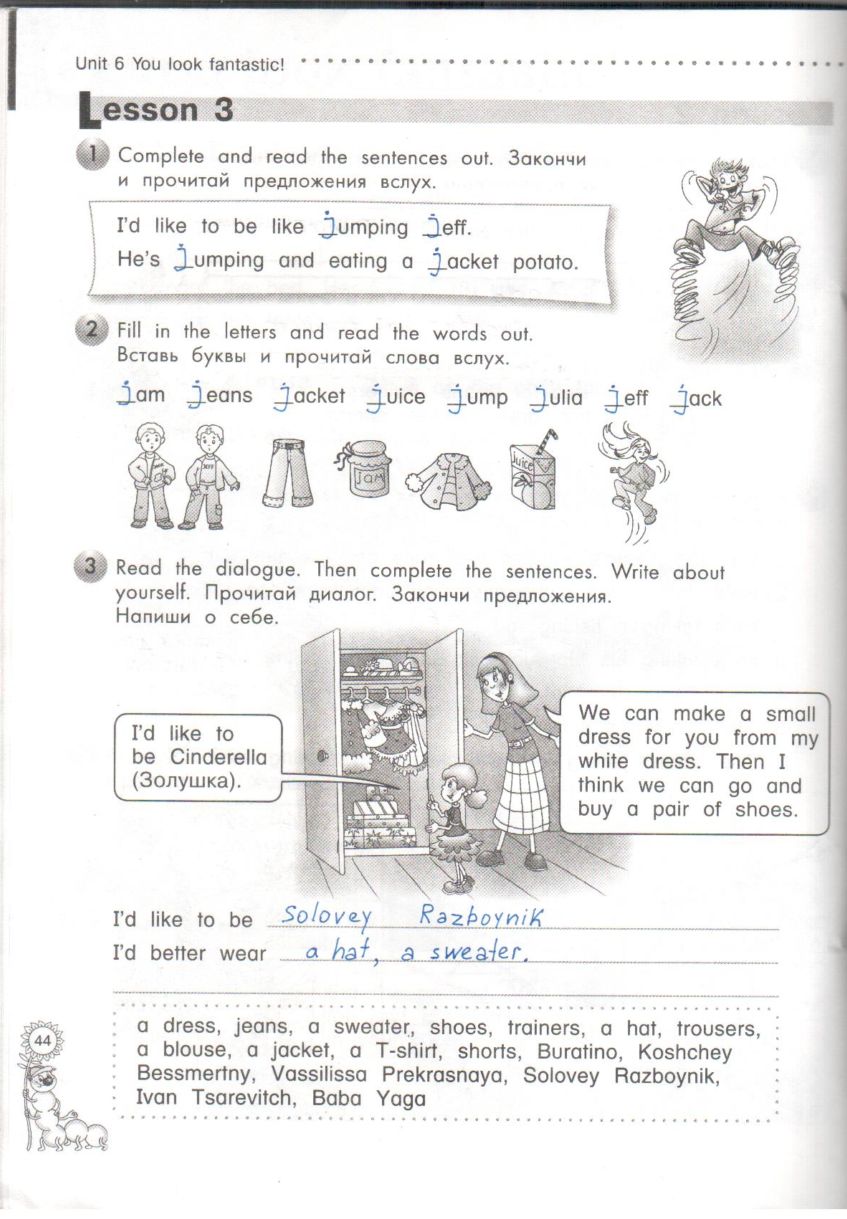 Unit 6 You look fantastic!
Lesson 3
1 Complete and read the sentences out. Закончи
и прочитай предложения вслух.
I'd like to be like jumping jeff.
He's jumping and eating a jacket potato.
2 Fill in the letters and read the words out.
Вставь буквы и прочитай слова вслух.
jam jeans jacket juice jump julia jeff jack
JEFF
JAM
juice
3 Read the dialogue. Then complete the sentences. Write about
yourself. Прочитай диалог. Закончи предложения.
Напиши о себе.
I'd like to
be Cinderella
(Золушка).
We can make a small
dress for you from my
white dress. Then I
think we can go and
buy a pair of shoes.
I'd like to be Solovey Razboynik
I'd better wear a hat, a sweater.
a dress, jeans, a sweater, shoes, trainers, a hat, trousers,
a blouse, a jacket, a T-shirt, shorts, Buratino, Koshchey
Bessmertny, Vassilissa Prekrasnaya, Solovey Razboynik,
Ivan Tsarevitch, Baba Yaga
44